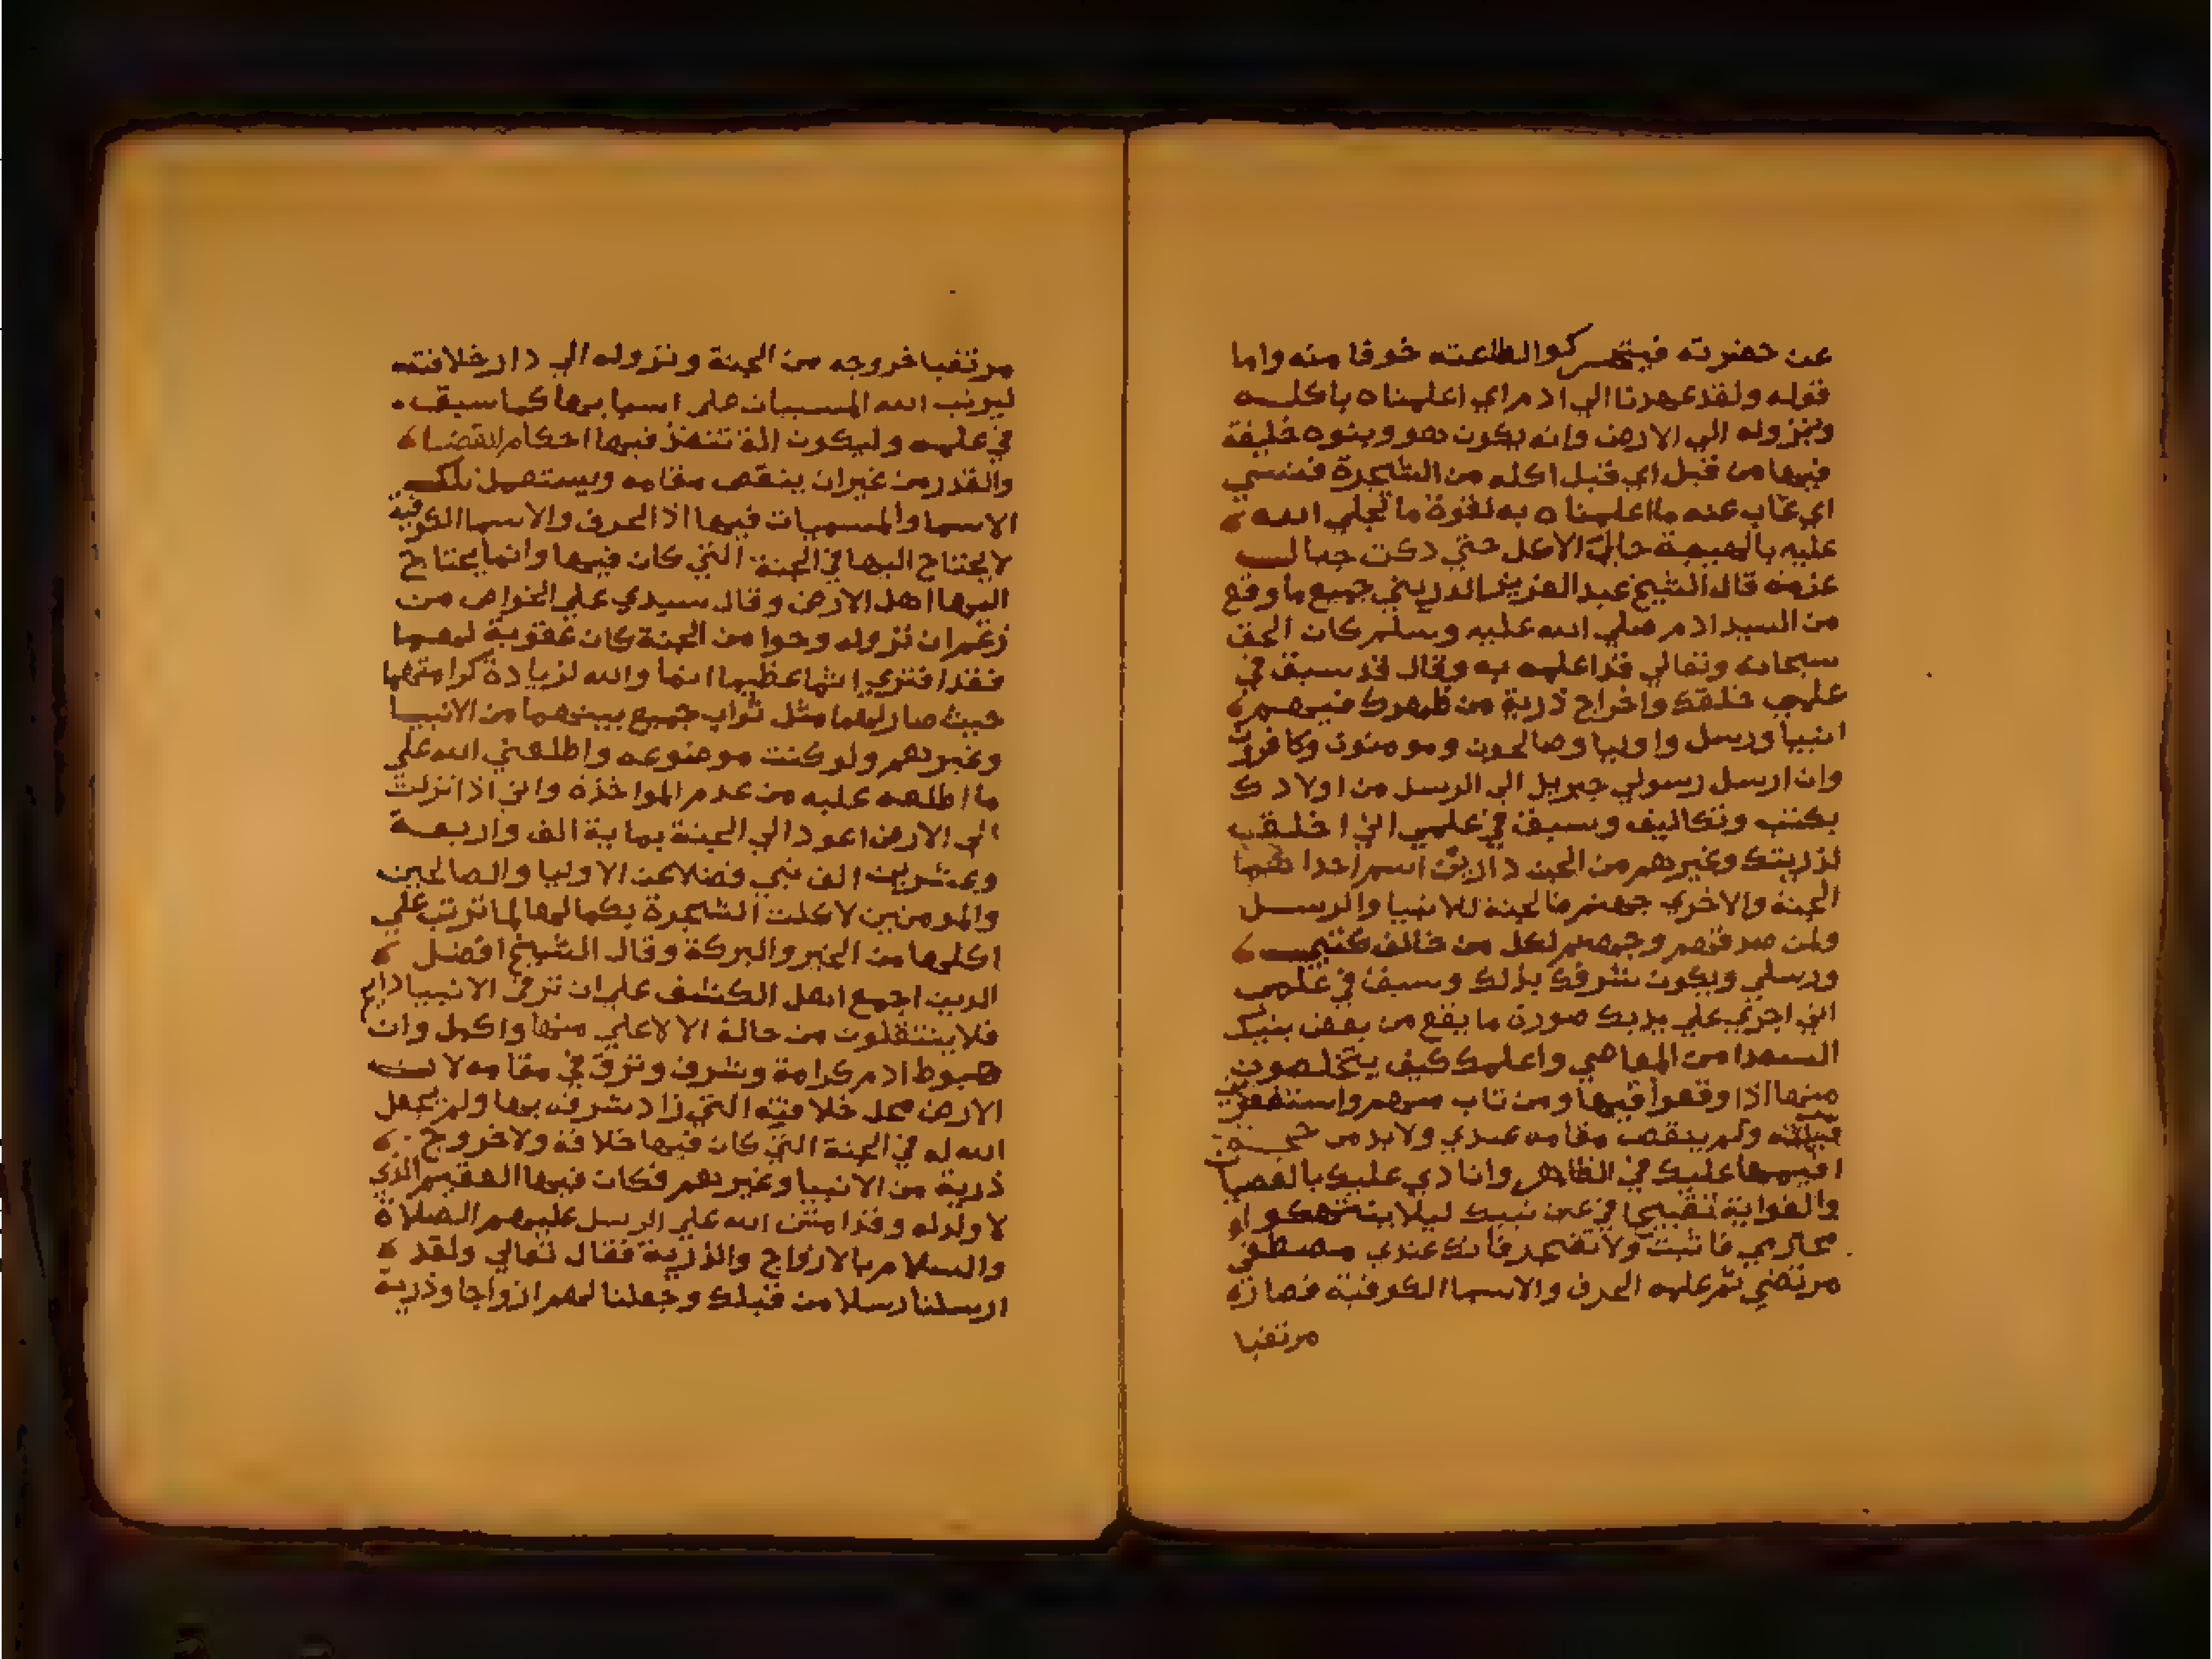 عن حضرته فيتحسر كوا لطاعته خوفا منه واما
قوله ولقد عهدنا الي ادم اي اعلمناه باكله
ونزوله الي الارض وانه يكون هو وبنوه خليفة
فيها من قبل اي قبل اكله من الشجرة فنسي
اي غاب عنه ما اعلمناه به لقوة ما تجلي الله
عليه بالهيبة حال الاكل حتي دكت جبال
عزمه قال الشيخ عبد العزيز الدريني جميع ما وقع
من السيد ادم صلي الله عليه وسلم كان الحق
سبحانه وتعالي قد اعلمه به وقال قد سبق في
علمي خلقك واخراج ذرية من ظهرك فيهم
انبيا ورسل واوليا وصالحون ومومنون وكافرون
وان ارسل رسولي جبريل الي الرسل من اولادك
بكتب وتكاليف وسبق في علمي اني اخلق
لذريتك وغيرهم من الجن دارين اسم احداهما
الجنة والاخري جهنم فالجنة للانبيا والرسل
ولمن صدقهم وجهنم لكل من خالف كتبي
ورسلي ويكون شرفك بذلك وسبق في علمي
اني اجري علي يديك صورة ما يقع من بعض بنيك
السعدا من المعاصي واعلمك كيف يتخلصون
منها اذا وقعوا فيها ومن تاب منهم واستغفرني
قبلته ولم ينقص مقامه عندي ولابد من
اقيمها عليك في الظاهر وانادي عليك بالعصيان
والغواية تقبيحا في عين نبيك ليلا ينتهكوا
محارمي فاثبت ولا تضجر فانك عندي مصطفي
مرتضي ثم علمه الحرف والاسما الكوفية فصار
مرتقبا
مرتقبا خروجه من الجنة ونزوله الي دار خلافته
ليرتب الله المسببات علي اسبابها كما سبق
في علمه وليكون الة تنفذ فيها احكام القضا
والقدر من غير ان ينقص مقامه ويستعمل تلك
الاسما والمسميات فيها اذ الحرف والاسما الكوفية
لا يحتاج اليها في الجنة التي كان فيها وانما يحتاج
اليها اهل الارض وقال سيدي علي الخواص من
زعم ان نزوله وحوا من الجنة كان عقوبة لهما
فقد افتري اثما عظيما انما والله لزيادة كرامتهما
حيث صار لهما مثل ثواب جميع بينهما من الانبيا
وغيرهم ولو كنت موضوعه واطلعني الله علي
ما اطلعه عليه من عدم المواخذة واني اذا نزلت
الي الارض اعود الي الجنة بماية الف واربعة
وعشرين الف نبي فضلا عن الاوليا والصالحين
والمومنين لاكلت الشجرة بكمالها لما ترتب علي
اكلها من الخير والبركة وقال الشيخ افضل
الدين اجمع اهل الكشف علي ان ترقي الانبيا دايم
فلا ينتقلون من حالة الا لاعلي منها واكمل وان
هبوط ادم كرامة وشرف وترق في مقامه لان
الارض محل خلافته التي زاد شرفه بها ولم يجعل
الله له في الجنة التي كان فيها خلافة ولا خروج
ذرية من الانبيا وغيرهم فكان فيها العقيم الذي
لا ولد له وقد امتن الله علي الرسل عليهم الصلاة
والسلام بالازواج والذرية فقال تعالي ولقد
ارسلنا رسلا من قبلك وجعلنا لهم ازواجا وذرية